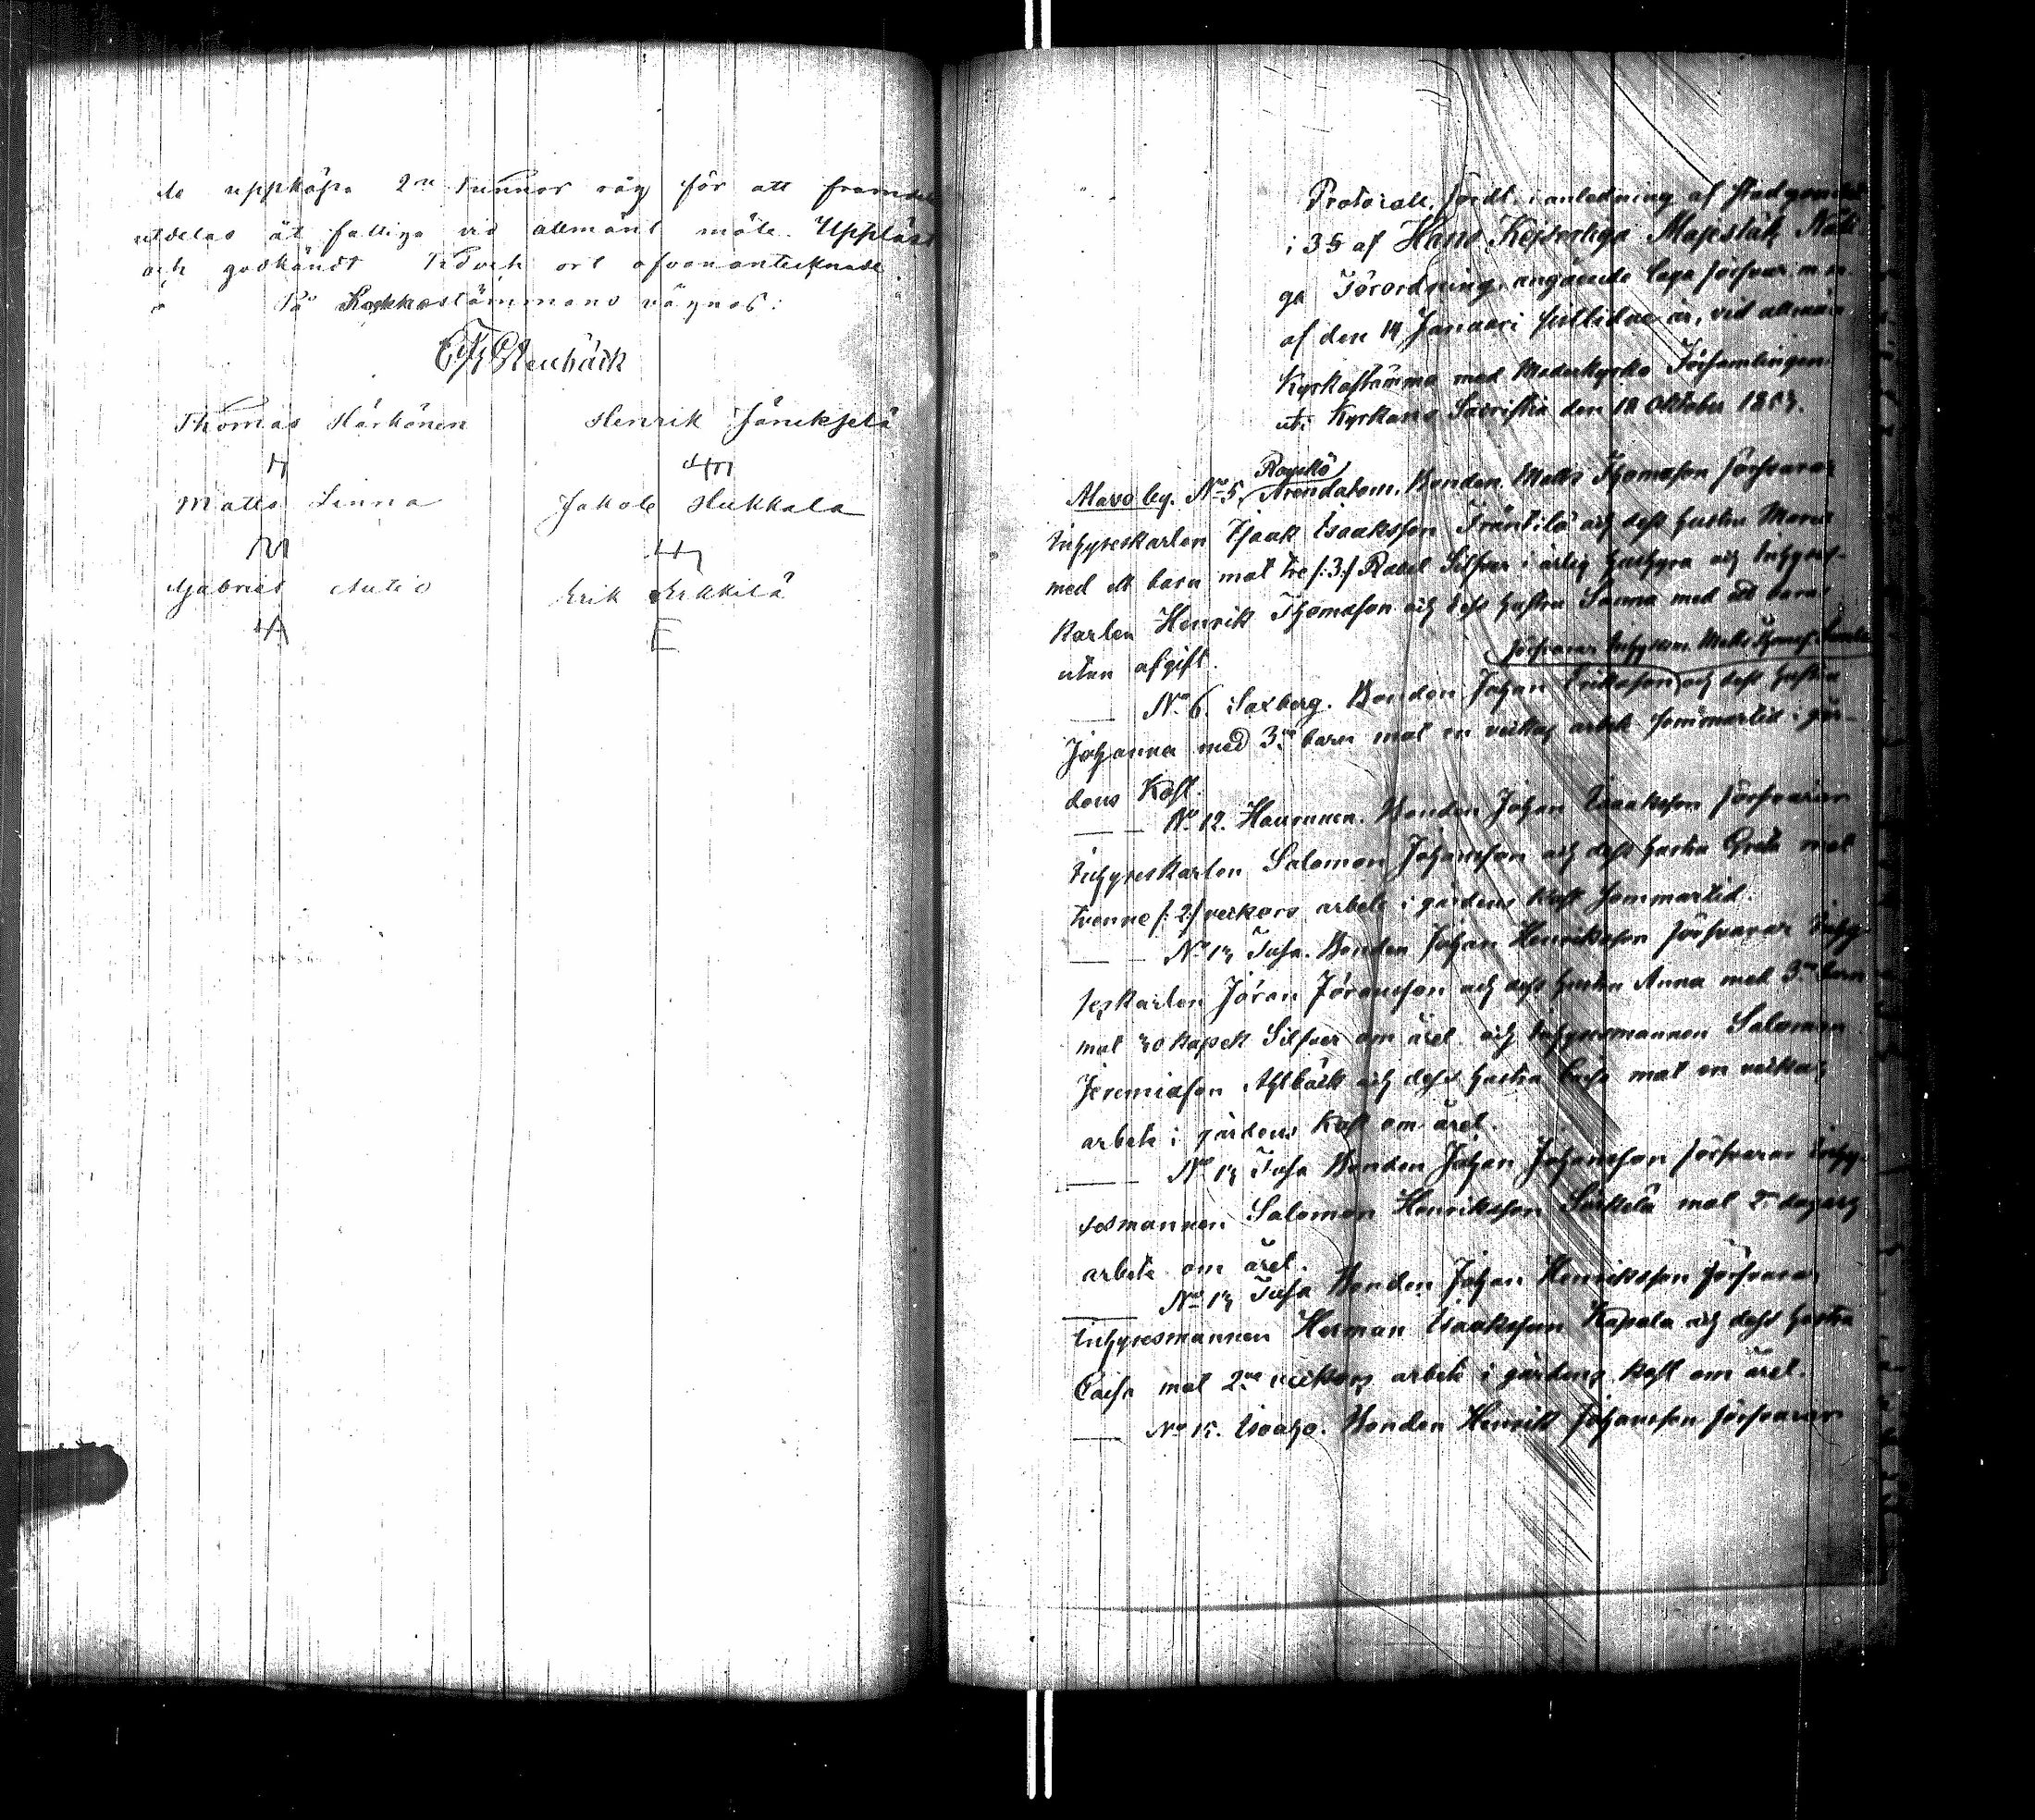 de uppköpa 2ne tunnor råg för att framdel
utdelas åt fattiga vid allmänt möte. Uppläst
och godkändt tid och ort ofvanantecknade
På Kyrkostämmans vägnar:
Stenbäck
Thomas Härkönen Henrik Jänikjelä
Matts Linna Jakob Hukkala
Gabriel Autio Erik Erkkilä
E
Protocoll, fördt i anledning af stadgandet
i 3 § af Hans Kejserliga Majestäts Nådi
ga Förordning, angående laga försvar m.m.
af den 19 Januari sistlidne år, vid allmän
Kyrkostämma med Moderkyrko Församlingen
uti Kyrkans Sacristia den 18 Oktober 1853.
Alavo by. No 5, Arendatorn, Bonden Matts Thomasson försvarar
inhyseskarlen Isaak Isaaksson Fräntilä och dess hustru Maria
med ett barn mot tre /:3:/ Rubel Silfver i årlig hushyra och inhyses-
karlen Henrik Thomasson och dess hustru Sanna med ett barn
utan afgift.
försvarar inhysesm. Matts
No 6. Saxberg. Bonden Johan Eriksson och dess hustru
Johanna med 3ne barn mot en veckas arbete sommartid i går-
dens Kost.
No 12. Haurunen. Bonden Johan Isaaksson försvarar
inhyseskarlen Salomon Johansson och dess hustru Greta mot
tvenne /:2:/ veckors arbete i gårdens kost sommartid.
No 13 Tusa. Bonden Johan Henriksson försvarar inhy-
seskarlen Jöran Jöransson och dess hustru Anna med 3ne barn
mot 30 kopek Silfver om året och inhysesmannen Salomon
Jeremiasson Ahlbäck och dess hustru Caisa mot en veckas
arbete i gårdens Kost om året.
No 13 Tusa Bonden Johan Johansson försvarar inhy-
sesmannen Salomon Henriksson mot 2ne dagars
arbete om året.
No 13 Tusa Bonden Johan Henriksson försvarar
inhysesmannen Herman Isaaksson Kapala och dess hustru
Caisa mot 2ne veckors arbete i gårdens kost om året.
No 15. Isoaho. Bonden Henrik Johansson försvarar